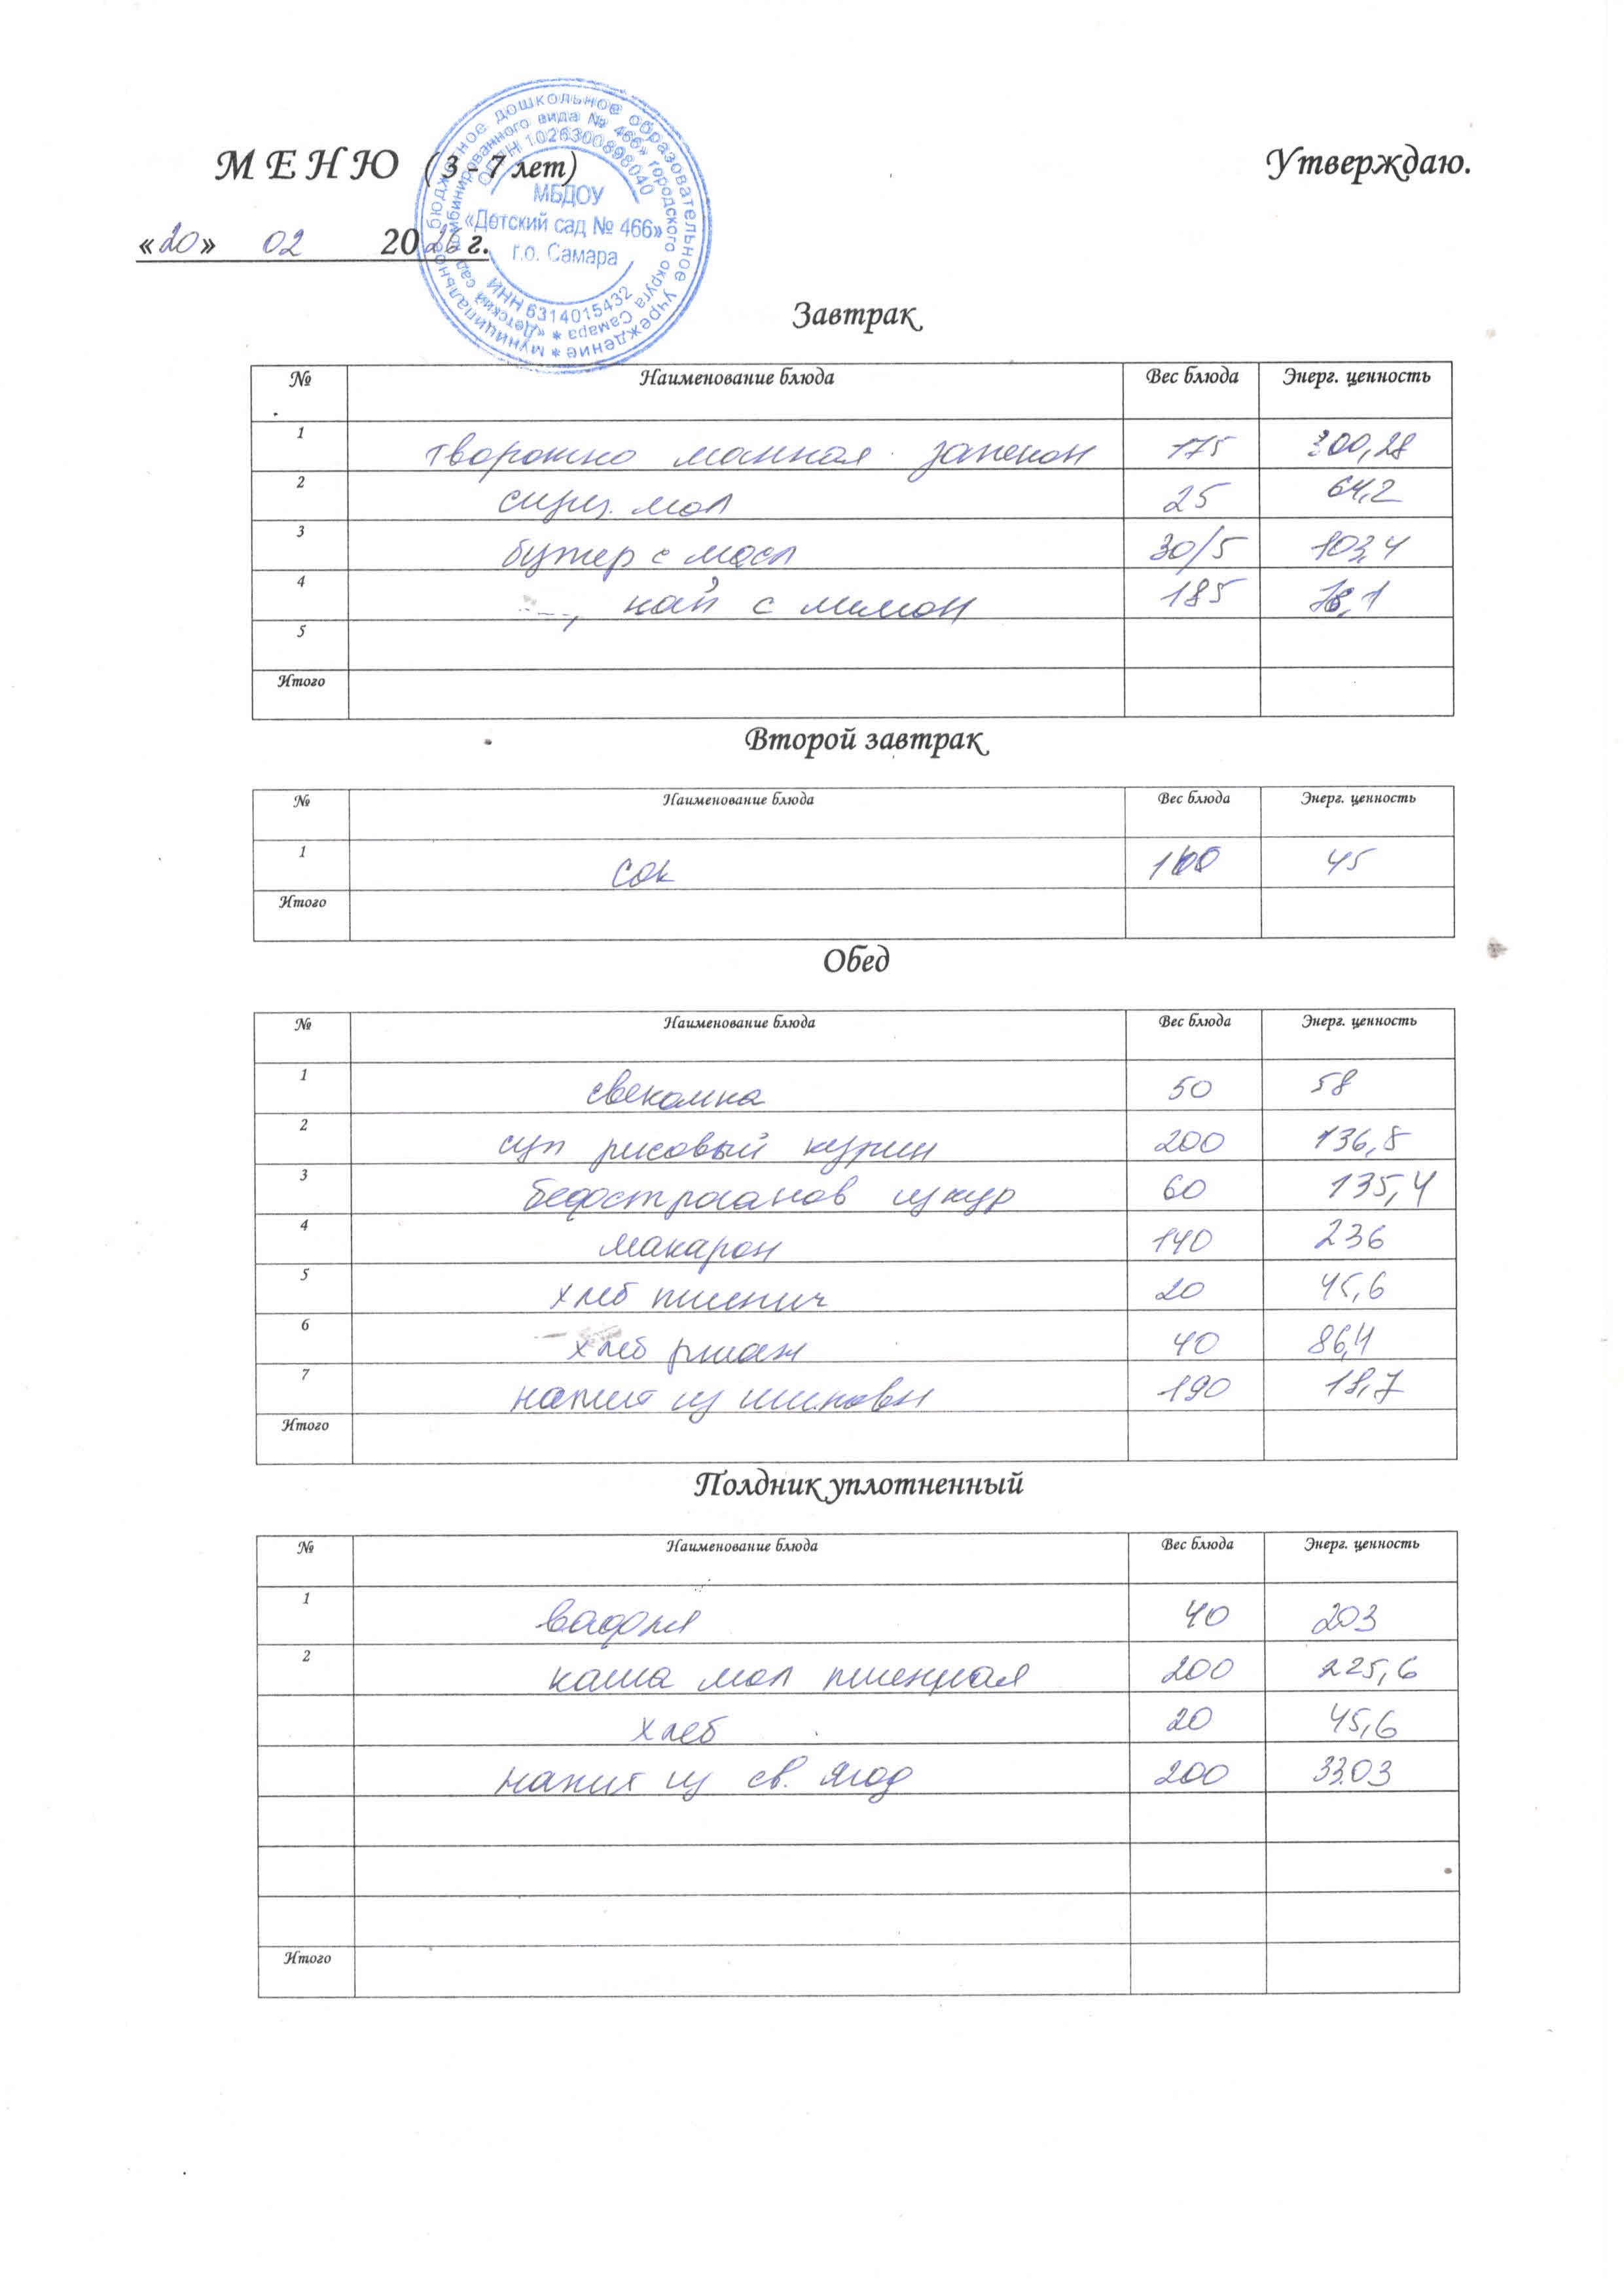 М Е Н Ю ( 3 - 7 лет)
Утверждаю.
«20» 02 2026 г.
муниципальное бюджетное дошкольное образовательное учреждение
«Детский сад комбинированного вида № 466» городского округа Самара
ОГРН 1026300898040
МБДОУ
«Детский сад № 466»
г.о. Самара
ИНН 6314015432
Завтрак
№ Наименование блюда Вес блюда Энерг. ценность
1 творожно манная запекан 175 200,28
2 сгущ. мол 25 64,2
3 бутер с масл 30/5 103,4
4 чай с лимон 185
5
Итого
Второй завтрак
№ Наименование блюда Вес блюда Энерг. ценность
1 сок 100 45
Итого
Обед
№ Наименование блюда Вес блюда Энерг. ценность
1 свекольна 50 58
2 суп рисовый курин 200 136,8
3 бефостроганов из кур 60 135,4
4 макарон 140 236
5 хлеб пшенич 20 45,6
6 хлеб ржан 40 86,4
7 напит из шиповн 190 18,7
Итого
Полдник уплотненный
№ Наименование блюда Вес блюда Энерг. ценность
1 вафля 40 203
2 каша мол пшенная 200 225,6
хлеб 20 45,6
напит из св. ягод 200 33.03
Итого